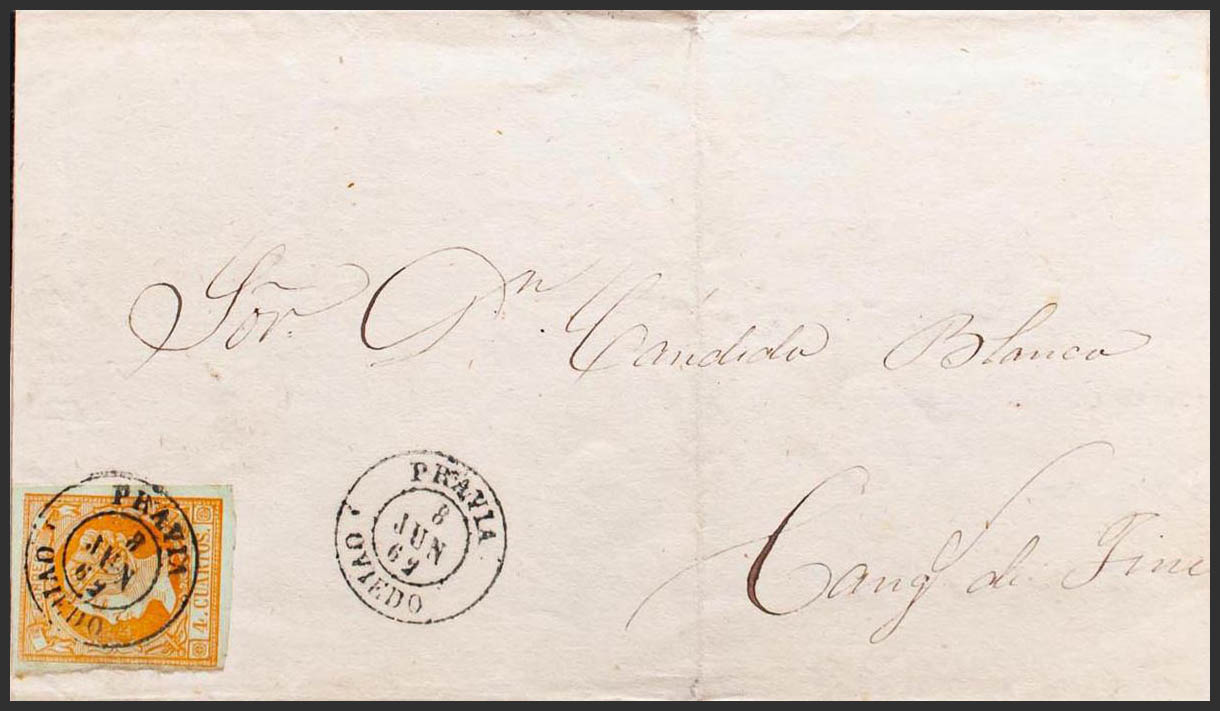 Sor. Dn. Candido Blanco
Cangs de Tine
PRAVIA
8
JUN
62
OVIEDO
PRAVIA
8
JUN
62
OVIEDO
4. CUARTOS.